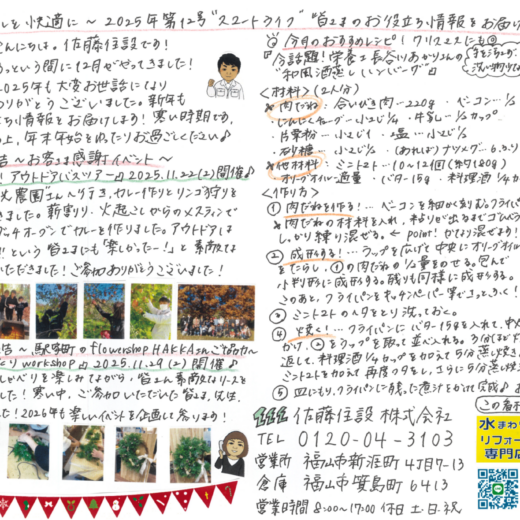 しを快適に～2025年第12号"スマートライフ""皆さまのお役立ち情報をお届け
こんにちは。佐藤住設です!
っという間に12月がやってきました!
2025年も大変お世話になり
ありがとうございました。新年も
ち情報をお届けします!寒い時期です。
の上、年末年始をゆったりお過ごしください♪
告～お客さま感謝イベント～
!アウトドアバスツアー 2025.11.22(土)開催♪
農園さんへ行き、カレー作りとリンゴ狩りを
きました。薪割り、火起こしからのメスティンで
ッチオーブンでカレーを作りました。アウトドアは
!という皆さまにも「楽しかったー!」と
いただきました!ご参加ありがとうございました!
告～駅家町のflowershop HAKKAさんご協力～
り workshop 2025.11.29(土)開催♪
しゃべりを楽しみながら、皆さん素敵なリースを
した!寒い中、ご参加いただいた皆さま、
した!2026年も楽しいイベントを企画して参ります!
今月のおすすめレシピ!クリスマスにも
今話題!栄養士長谷川あかりさんの
"和風酒蒸しハンバーグ"
<材料>(2人分)
*肉だね…合いびき肉…220g・ベーコン…
にんにくチューブ…小さじ1/4・牛乳…1/4カップ
片栗粉…小さじ1・塩…小さじ1/2
砂糖…小さじ1/4・(あれば)ナツメグ…6.0ふり
*他材料:ミニトマト…10～12個(約180g)
オリーブオイル…適量・バター15g・料理酒1/4カ
<作り方>
①肉だねを作る!…ベーコンを細かく刻む。フライパ
*肉だねの材料を入れ、粘りが出るまで
しっかり練り混ぜる。←point!かなり混ぜます!
②成形する!…ラップを広げて中央にオリーブオイル
をたらし、①の肉だねの1/2量をのせる。包んで
小判形に成形する。残りも同様に成形する。
このあと、フライパンをキッチンペーパー等でさっとふく!
③ミニトマトのヘタをとり洗っておく。
④焼く!…フライパンにバター15gを入れて、中火
かけ、②をラップを取って並べ入れる。3分ほど焼き
返して、料理酒1/4カップを加えて5分蒸し焼き
ミニトマトを加えて再度フタをし、さらに5分蒸し焼き
⑤皿にもり、フライパンに残った煮汁をかけて完成♪
佐藤住設株式会社
TEL 0120-04-3103
営業所 福山市新涯町4丁目7-13
倉庫 福山市箕島町6413
営業時間 8:00～17:00 休日 土・日・祝
この看板
水まわ
リフォー
専門店
LINE